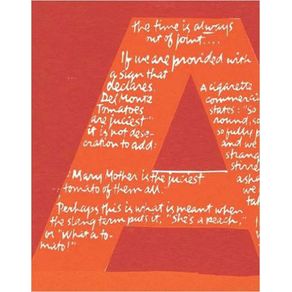 the time is always
out of joint....
If we are provided with
a sign that
declares
Del Monte
Tomatoes
are juiciest"
it is not dese-
cration to add:
"Mary Mother is the juiciest
tomato of them all."
Perhaps this is what is meant when
the slang term puts it, "She's a peach,"
or "What a to-
mato!"
A cigarette
commercial
states: "So
round, so
so fully p
and we
strang
stirre
ashes
we
ta